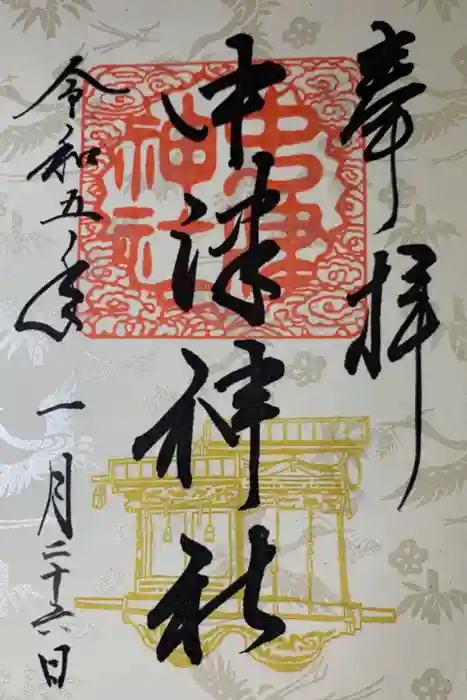 奉拝
中津神社
中津神社
令和五年一月二十六日